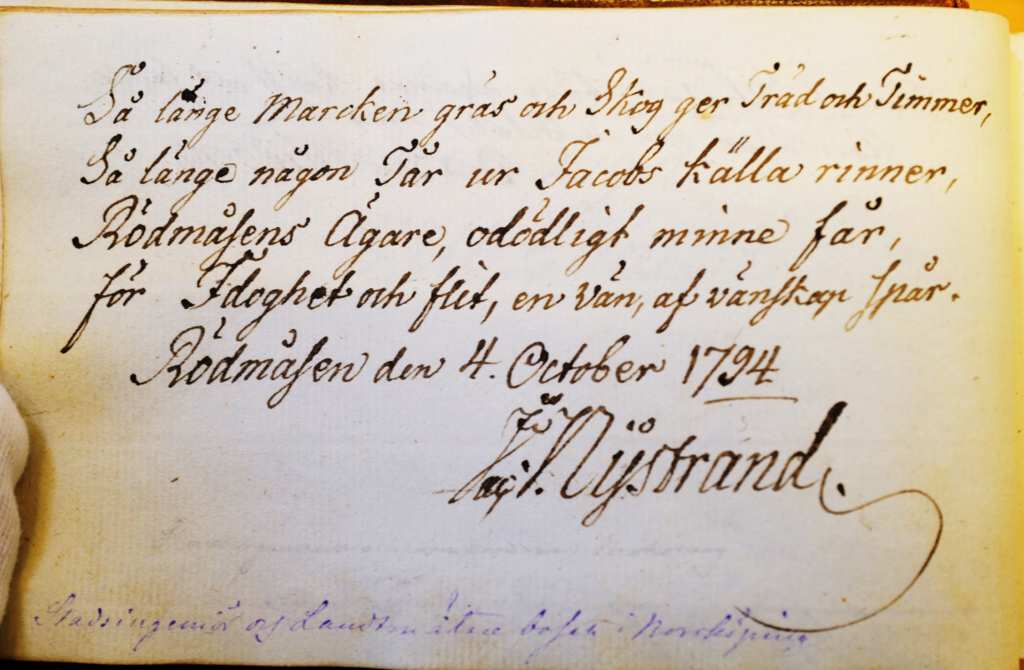 Så länge Marcken gräs och Skog ger Träd och Timmer,
Så länge någon Tår ur Jacobs källa rinner,
Rödmåsens Ägare, odödligt minne får,
för Idoghet och flit, en vän, af vänskap spår.
Rödmåsen den 4. October 1794
Nÿstrand.
Stadsingeniör och Landtmätare bosatt i Norrköping